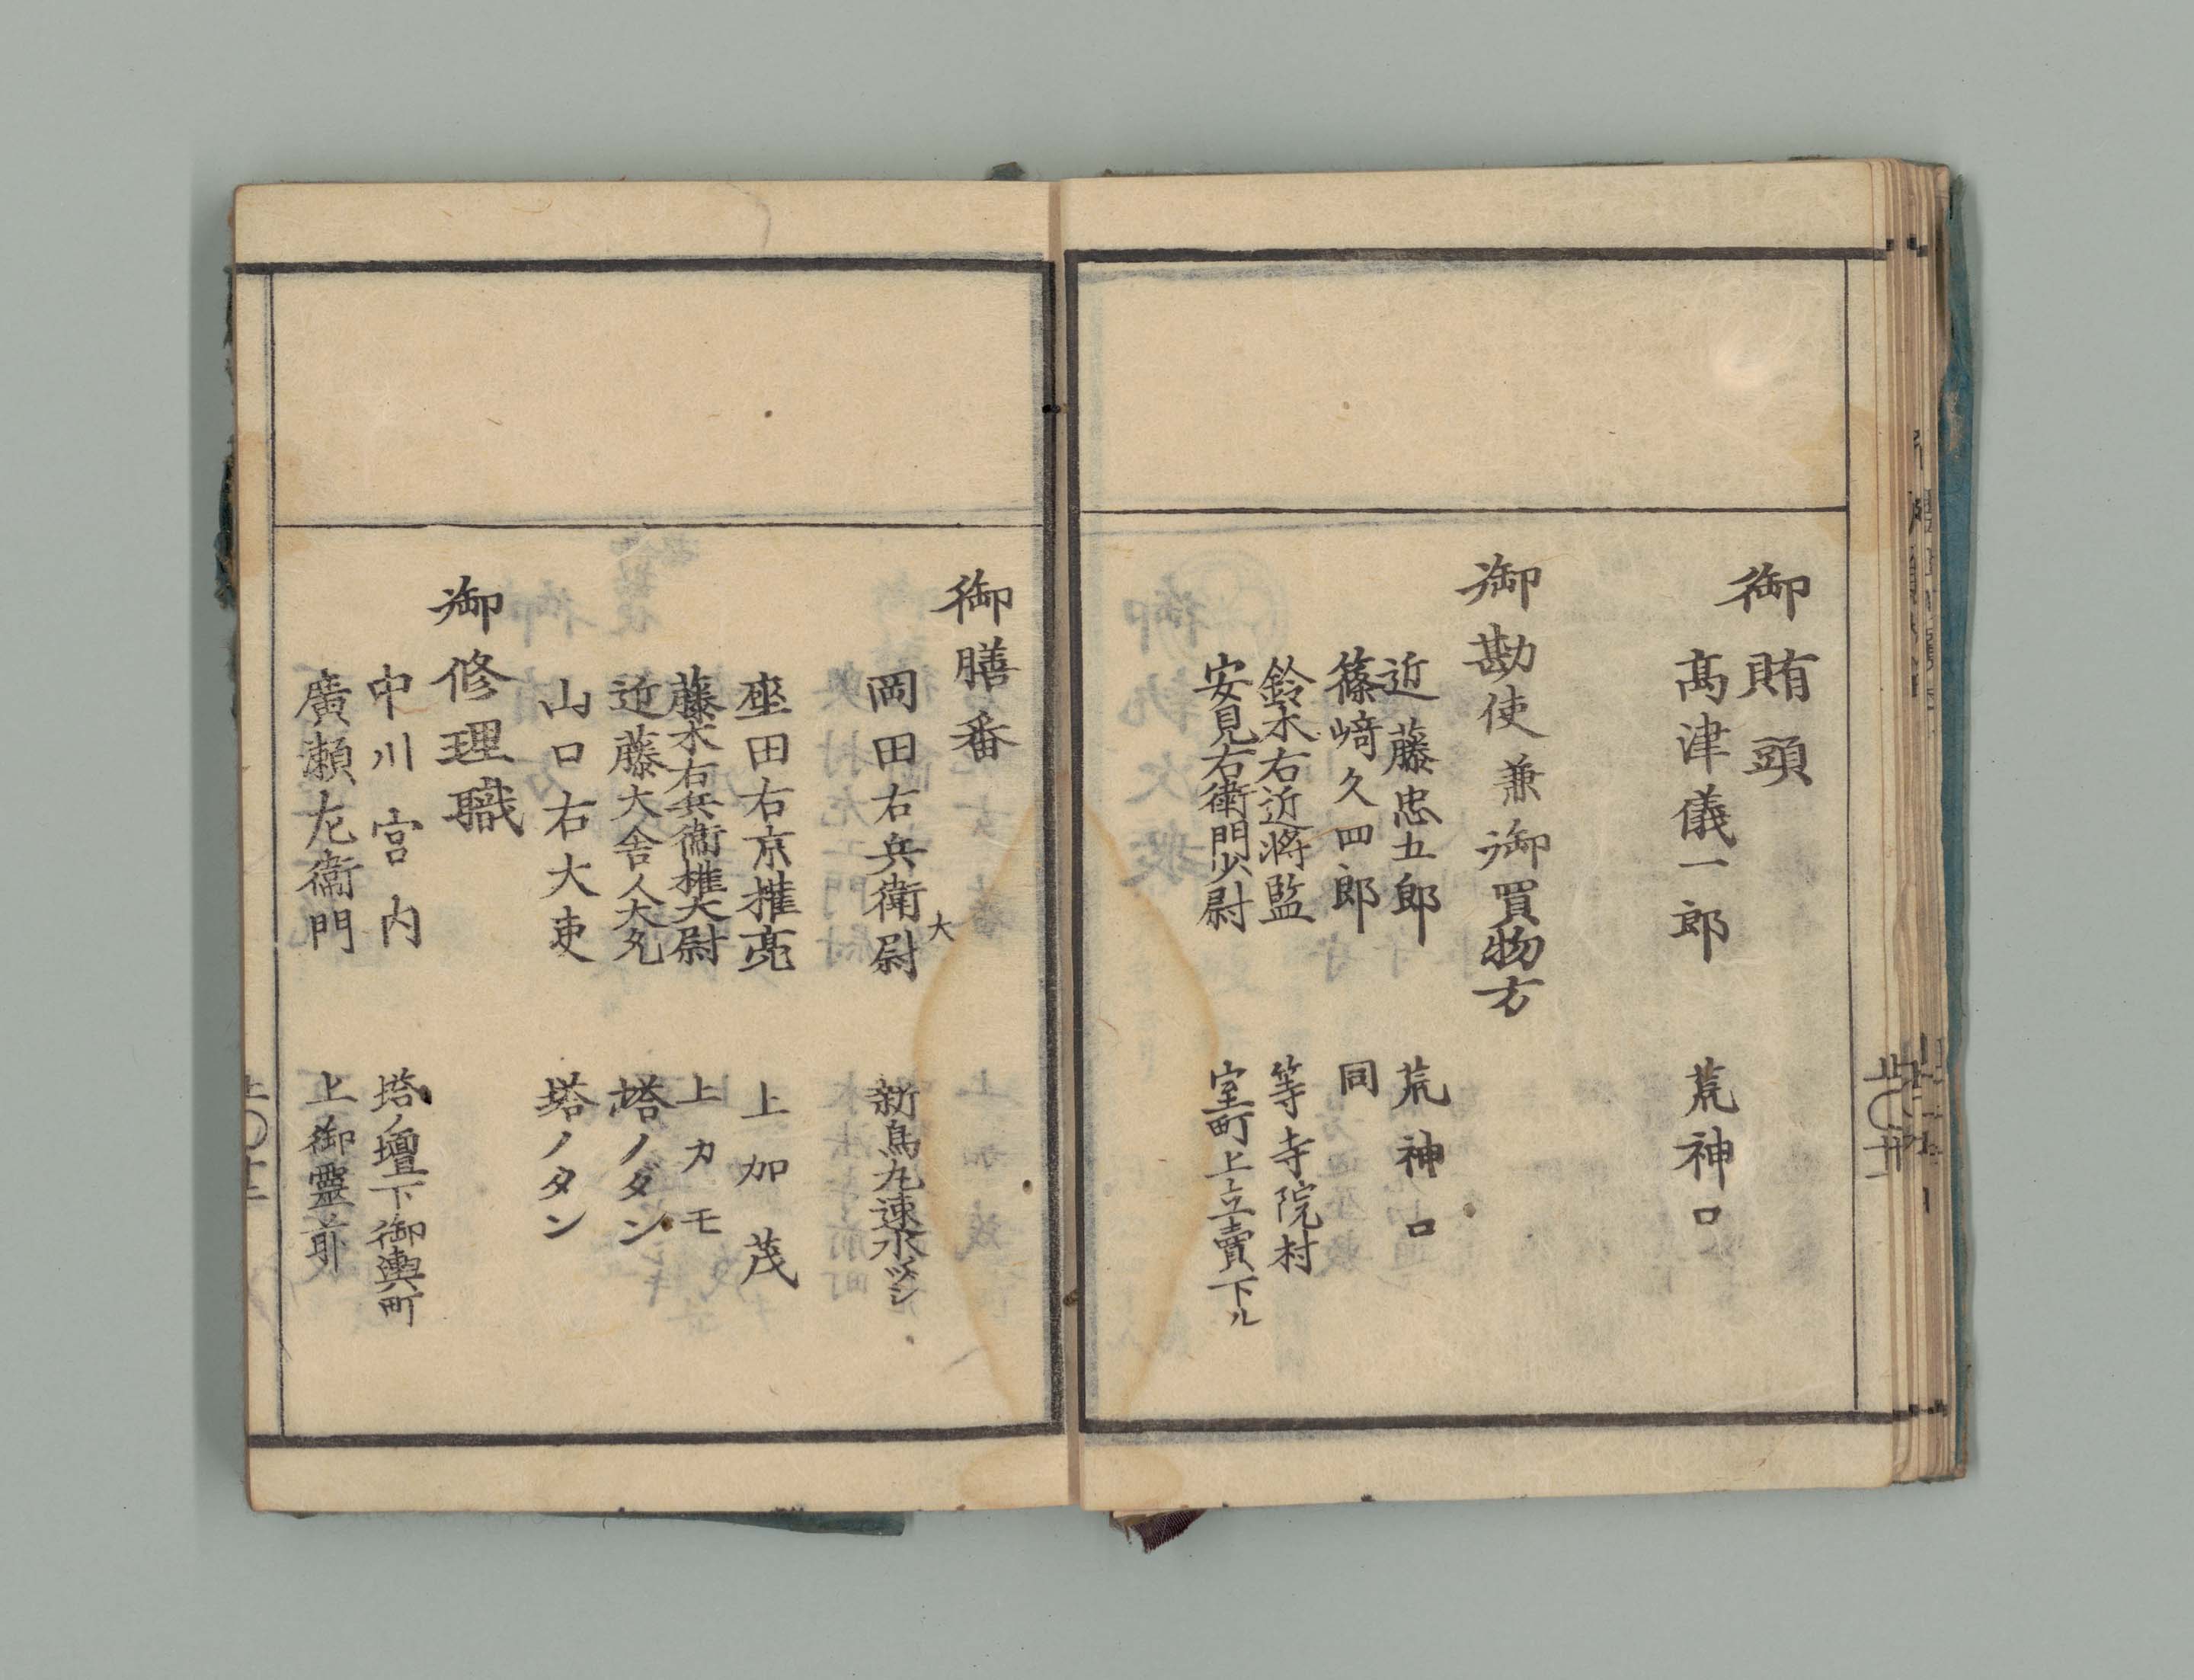 御賄頭
髙津儀一郎 荒神口
御勘使兼御買物方
近藤忠五郎 荒神口
篠﨑久四郎 同
鈴木右近将監 等寺院村
安見右衛門少尉 室町上立賣下ル
御膳番
岡田右兵衛大尉 新烏丸速水ツシ
座田右京権亮 上加茂
藤木右兵衛権大尉 上カモ
近藤大舎人大允 塔ノダン
山口右大吏 塔ノタン
御修理職
中川宮内 塔ノ壇下御輿町
廣瀬左衛門 上御霊前